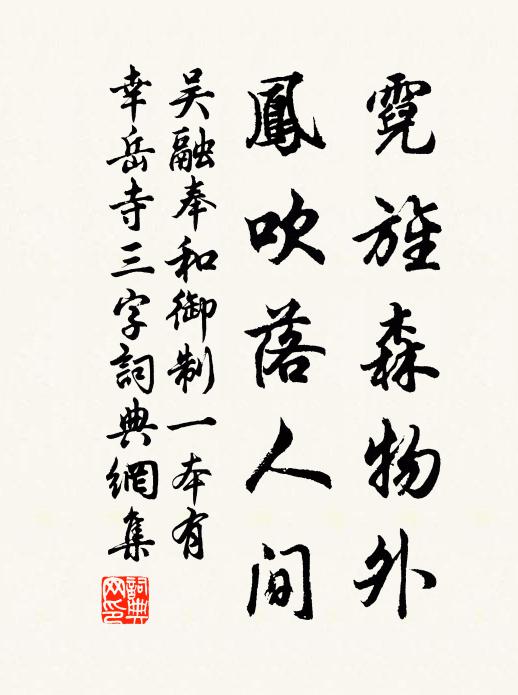 霓旌森物外
鳳吹落人間
吴融奉和御制一本有
幸岳寺三字詞典網集
詞典网印